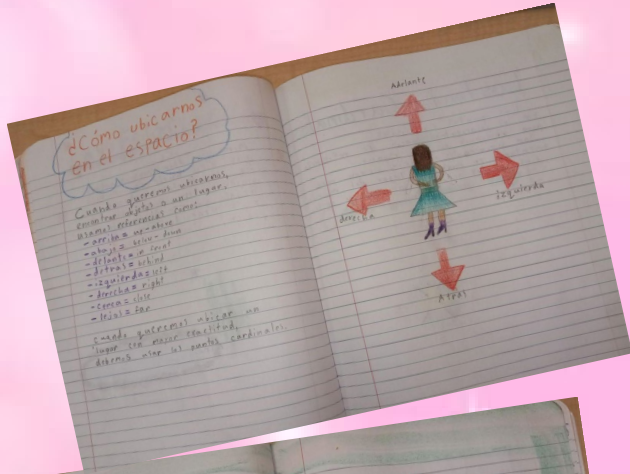 ¿Cómo ubicarnos
en el espacio?
Cuando queremos ubicarnos,
encontrar objetos o un lugar,
usamos referencias como:
- arriba = up-above
- abajo = below-down
- delante = in front
- detras = behind
- izquierda = left
- derecha = right
- cerca = close
- lejos = far
cuando queremos ubicar un
lugar con mayor exactitud,
debemos usar los puntos cardinales.
Adelante
izquierda
derecha
Atras